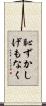 恥ずかし
げもなく